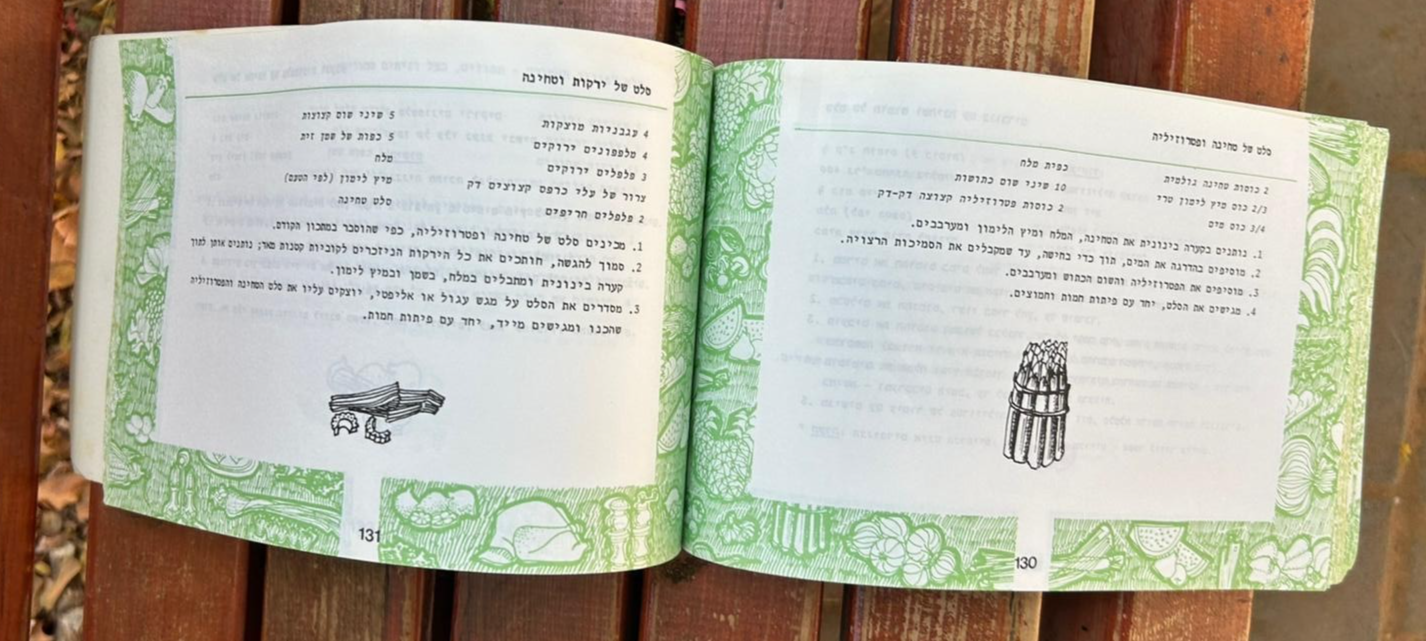 סלט של טחינה ופטרוזיליה
2 כוסות טחינה גולמית
2/3 כוס מיץ לימון טרי
3/4 כוס מים
כפית מלח
10 שיני שום כתושות
2 כוסות פטרוזיליה קצוצה דק-דק
1. נותנים בקערה בינונית את הטחינה, המלח ומיץ הלימון ומערבבים.
2. מוסיפים בהדרגה את המים, תוך כדי בחישה, עד שמקבלים את הסמיכות הרצויה.
3. מוסיפים את הפטרוזיליה והשום הכתוש ומערבבים.
4. מגישים את הסלט, יחד עם פיתות חמות וחמוצים.
130
סלט של ירקות וטחינה
4 עגבניות מוצקות
4 מלפפונים ירוקים
3 פלפלים ירוקים
צרור של עלי כרפס קצוצים דק
2 פלפלים חריפים
5 שיני שום קצוצות
5 כפות של שמן זית
מלח
מיץ לימון (לפי הטעם)
סלט טחינה
1. מכינים סלט של טחינה ופטרוזיליה, כפי שהוסבר במתכון הקודם.
2. סמוך להגשה, חותכים את כל הירקות הניזכרים לקוביות קטנות מאד; נותנים אותן לתוך
קערה בינונית ומתבלים במלח, בשמן ובמיץ לימון.
3. מסדרים את הסלט על מגש עגול או אליפטי, יוצקים עליו את סלט הטחינה והפטרוזיליה
שהכנו ומגישים מייד, יחד עם פיתות חמות.
131